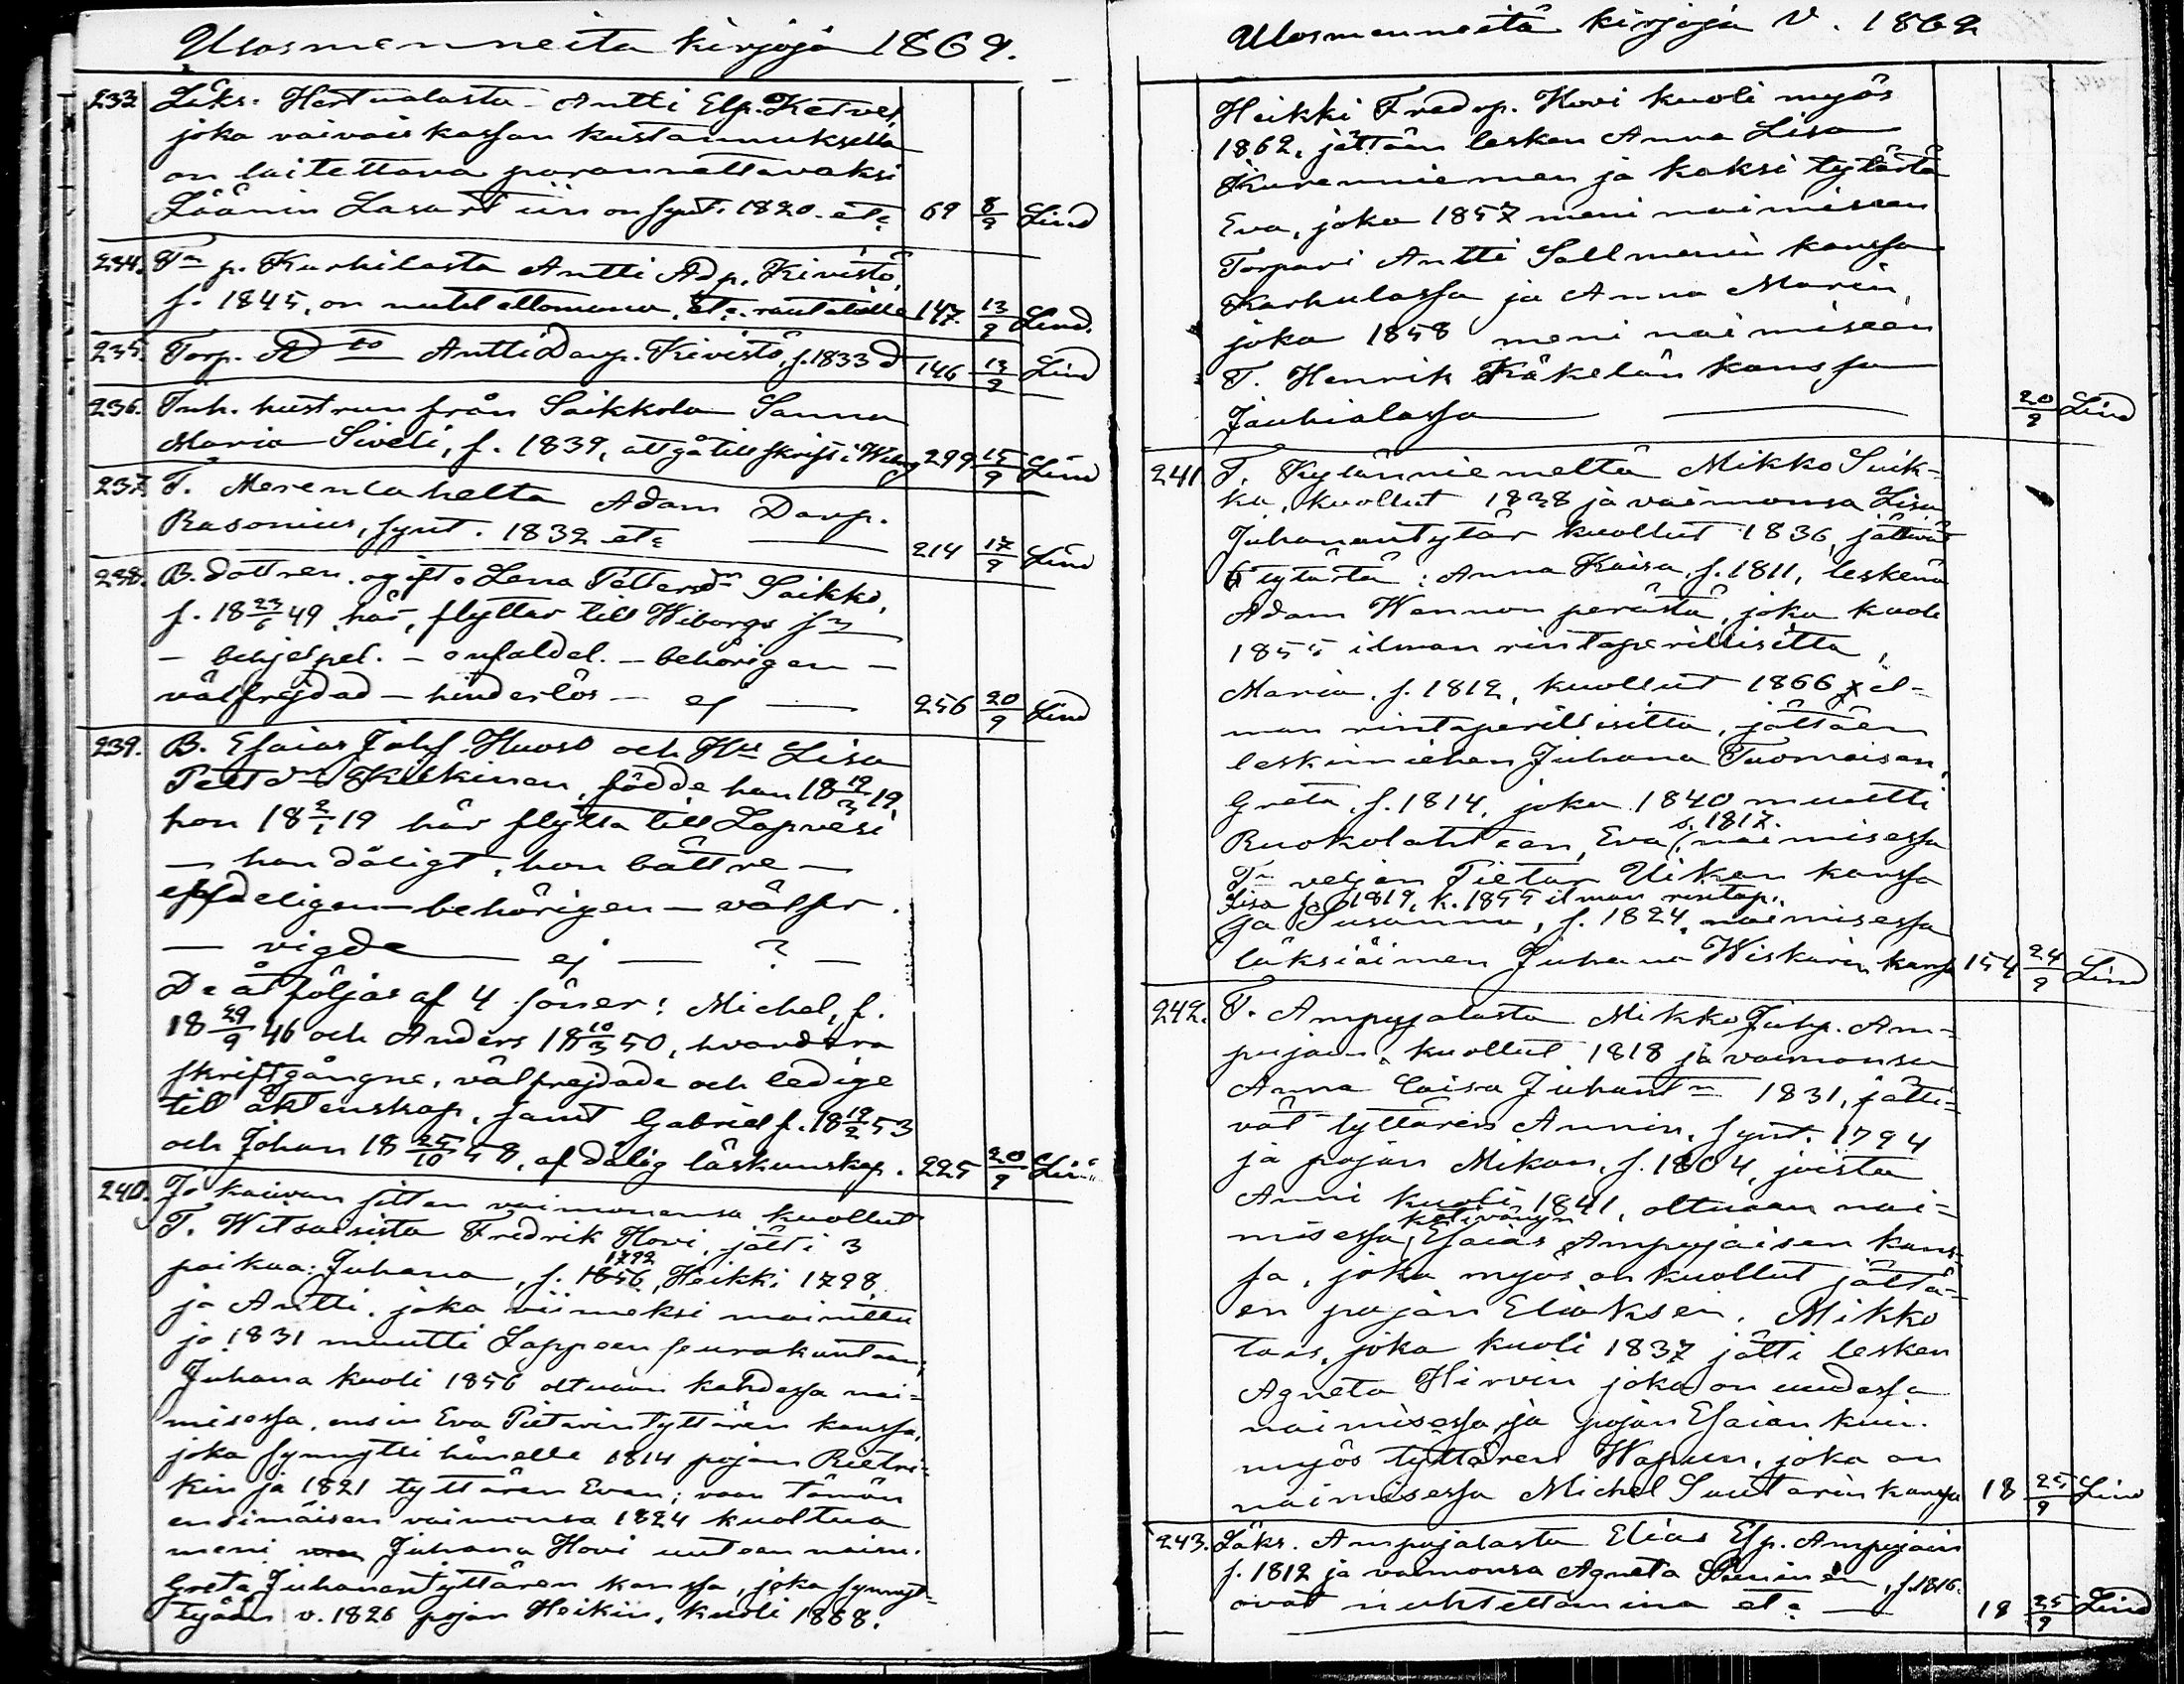 Ulosmenneitä kirjoja 1869.
233 Läks. Hertualasta Antti Elp. Ketvel
joka vaivais kassan kustannuksella
on laitettava parannettavaksi
Läänin Lasarettiin on synt. 1820. etc 69 8/9 Lind
234. Tn p. Karhilasta Antti Adp. Kivistö,
f. 1845, on nuhtettomana, etc. 147. 13/9 Lind.
235. Torp. Dto Antti Davp. Kivistö, f. 1833 146 13/9 Lind
236. Inh. hustrun från Saikkola Sanna
Maria Siveli, f. 1839, att gå till skrift i Wiborg 299 15/9 Lind
237. T. Merenlahelta Adam Davp.
Rasonius, synt. 1832 etc 214 17/9 Lind
238. B. dottren ogifta Lena Pettersdr Saikko,
f. 18 23/6 49 här, flyttar till Wiborgs
— enfaldel. — behörigen —
välfrejdad — hinderlös — ej — 256 20/9 Lind
239. B. Esaias Johsf. Huoso och Hu Lisa
Pettdr Kiiskinen, födde han 18 12/3 19,
hon 18 2/1 19 här flytta till Lapvesi
— han dåligt, hon bättre —
— behörigen — välfr.
— vigde — ej — ? —
De åtföljas af 4 söner: Michel, f.
18 29/9 46 och Anders 18 10/3 50, hvardera
skriftgångne, välfrejdade och ledige
till äktenskap, samt Gabriel f. 18 12/2 53
och Johan 18 25/10 58, af dålig läskunskap. 225 20/9 Lind
240. Jo kauvan sitten vaimonensa kuollut
T. Witsaisista Fredrik Hovi, jätti 3
poikaa: Juhana, f. 1792, Heikki 1798,
ja Antti, joka viimeksi mainittu
jo 1831 muutti Lappeen seurakuntaan;
Juhana kuoli 1856 oltuaan kahdessa nai=
misessa, ensin Eva Pietarintyttären kanssa,
joka synnytti hänelle 1814 pojan Rietri=
kin ja 1821 tyttären Evan; vaan tämän
ensimäisen vaimonsa 1824 kuoltua
meni Juhana Hovi uuteen naim.
Greta Juhanantyttären kanssa, joka synnyt=
tyään v. 1826 pojan Heikin, kuoli 1868.
Ulosmenneitä kirjoja V. 1869
Heikki Fredrp. Hovi kuoli myös
1862, jättäen lesken Anna Lisa
Kurenniemen ja kaksi tytärtä
Eva, joka 1857 meni naimiseen
Torpari Antti Sallmenin kanssa
Karhulassa ja Anna Maria,
joka 1858 meni naimiseen
T. Henrik Käkelän kanssa
Jauhialassa 20/9 Lind
241. T. Kylänniemeltä Mikko Suik=
ka, kuollut 1838 ja vaimonsa Lisa
Juhanantytär kuollut 1836, jättivät
6 tytärtä: Anna Kaisa, f. 1811, leskenä
Adam Wannon perästä, joka kuoli
1855 ilman rintaperillisittä,
Maria, f. 1812, kuollut 1866 il=
man rintaperillisittä, jättäen
leskimiehen Juhana Tuomaisen,
Greta, f. 1814, joka 1840 muutti
s. 1817.
Ruokolahteen, Eva naimisessa
Tn veljen Pietar Uiken kanssa
Lisa f. 1819, k. 1855 ilman rintap.
ja Susanna, f. 1824, naimisessa
läksiäimen Juhana Wiskarin kanssa 154 24/9 Lind
242. T. Ampujalasta Mikko Juhp. Am=
pujain, kuollut 1818 ja vaimonsa
Anna Caisa Juhantr 1831, jätti=
vät tyttären Annin, synt. 1794
ja pojan Mikon, f. 1804, joista
Anni kuoli 1841, oltuaan nai=
kotivävyn
misessa Esaias Ampujaisen kans=
sa, joka myös on kuollut jättä=
en pojan Eliaksen. Mikko
taas, joka kuoli 1837 jätti lesken
Agneta Hirvin joka on uudessa
naimisessa, ja pojan Esaian kuin
myös tyttären Wapun, joka on
naimisessa Michel Suutarin kanssa 18 25/9 Lind
243. Läks. Ampujalasta Elias Esp. Ampujain
f. 1812 ja vaimonsa Agneta Suninen, f. 1816.
ovat nuhtettamina etc — 18 25/9 Lind